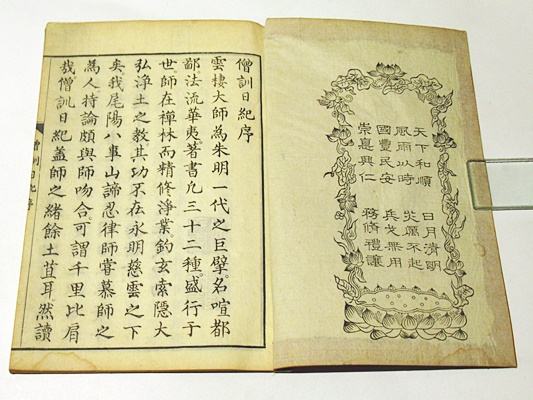 天下和順 日月清明
風雨以時 災厲不起
國豐民安 兵戈無用
崇悳興仁 務脩禮讓
僧訓日紀序
雲棲大師為朱明一代之巨擘名喧都
鄙法流華夷著書凡三十二種盛行于
世師在禪林而精修淨業鈎玄索隱大
弘淨土之教其功不在永明慈雲之下
矣我尾陽八事山諦忍律師嘗慕師之
為人持論頗與師吻合可謂千里比肩
哉僧訓日紀蓋師之緒餘土苴耳然讀
僧訓日紀序